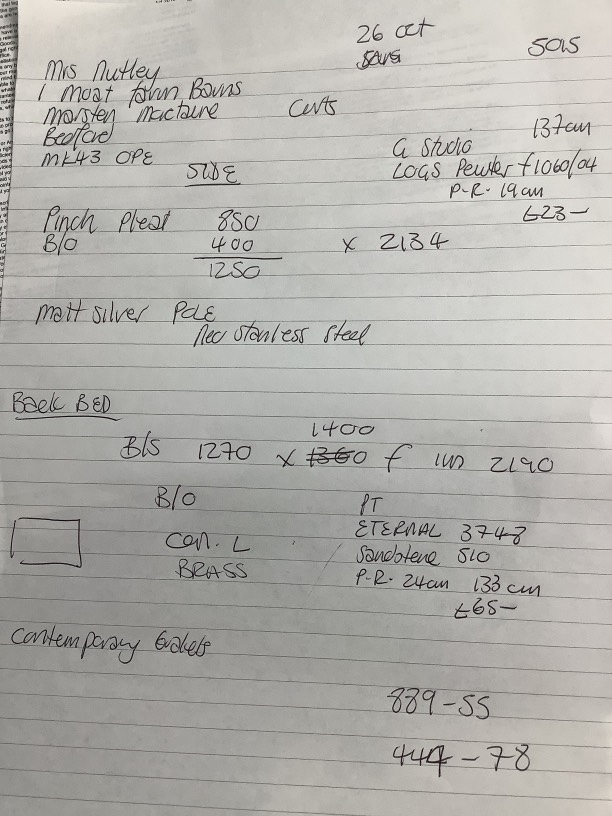 26 oct
50/5
Mrs Nutley
1 Moat farm Barns
Marsten Mactaine
Bedford
MK43 OPE
Curts
SIDE
137cm
G Studio
LOGS Pewter f1060/04
P-R- 19cm
£23-
Pinch Pleat 850
B/O 400 x 2134
1250
Matt silver POLE
Neo stanless steel
Back BED
1400
B/S 1270 x 1360 f 2190
B/O
PT
ETERNAL 3748
Con. L
Sandstene 510
BRASS
P-R- 24cm 133 cm
£65-
Contemporary
889-55
444-78